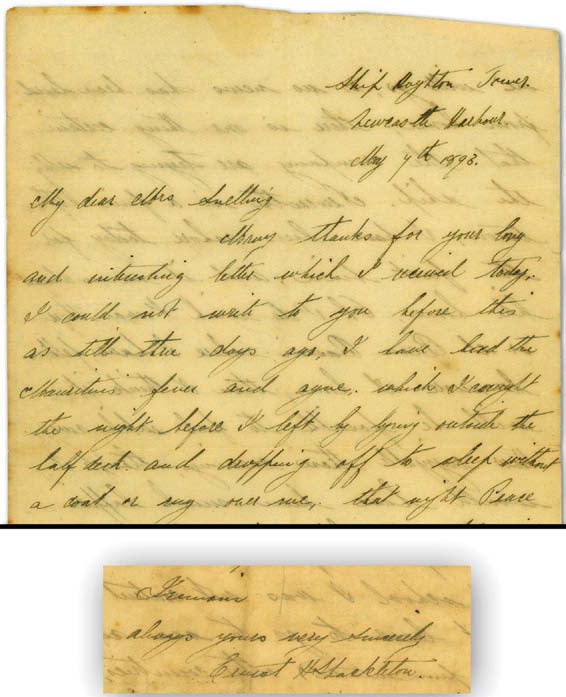 Ship Hoghton Tower.
Newcastle Harbour
May 7th 1893.
My dear Mrs Snelling
Many thanks for your long
and interesting letter which I received today.
I could not write to you before this
as till three days ago, I have had the
Mauritius fever and ague. which I caught
the night before I left by lying outside the
half deck and dropping off to sleep without
a coat or rug over me, that night Pease
I remain
always yours very sincerely
Ernest H Shackleton.